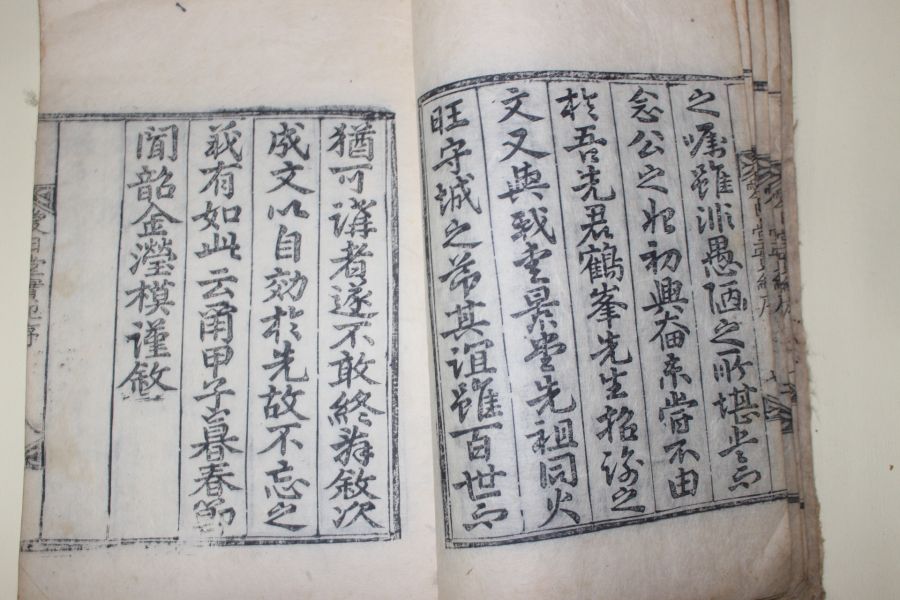 之嘱雖非愚陋之所堪而
念公之初興奮不由
於吾先君鶴峯先生招諭之
文又與我景堂先祖同火
旺守誠之節其誼雖百世而
猶可講者遂不敢終辭敘次
成文以自効於先故不忘之
義有如此云爾甲子暮春節
聞韶金瀅模謹敘